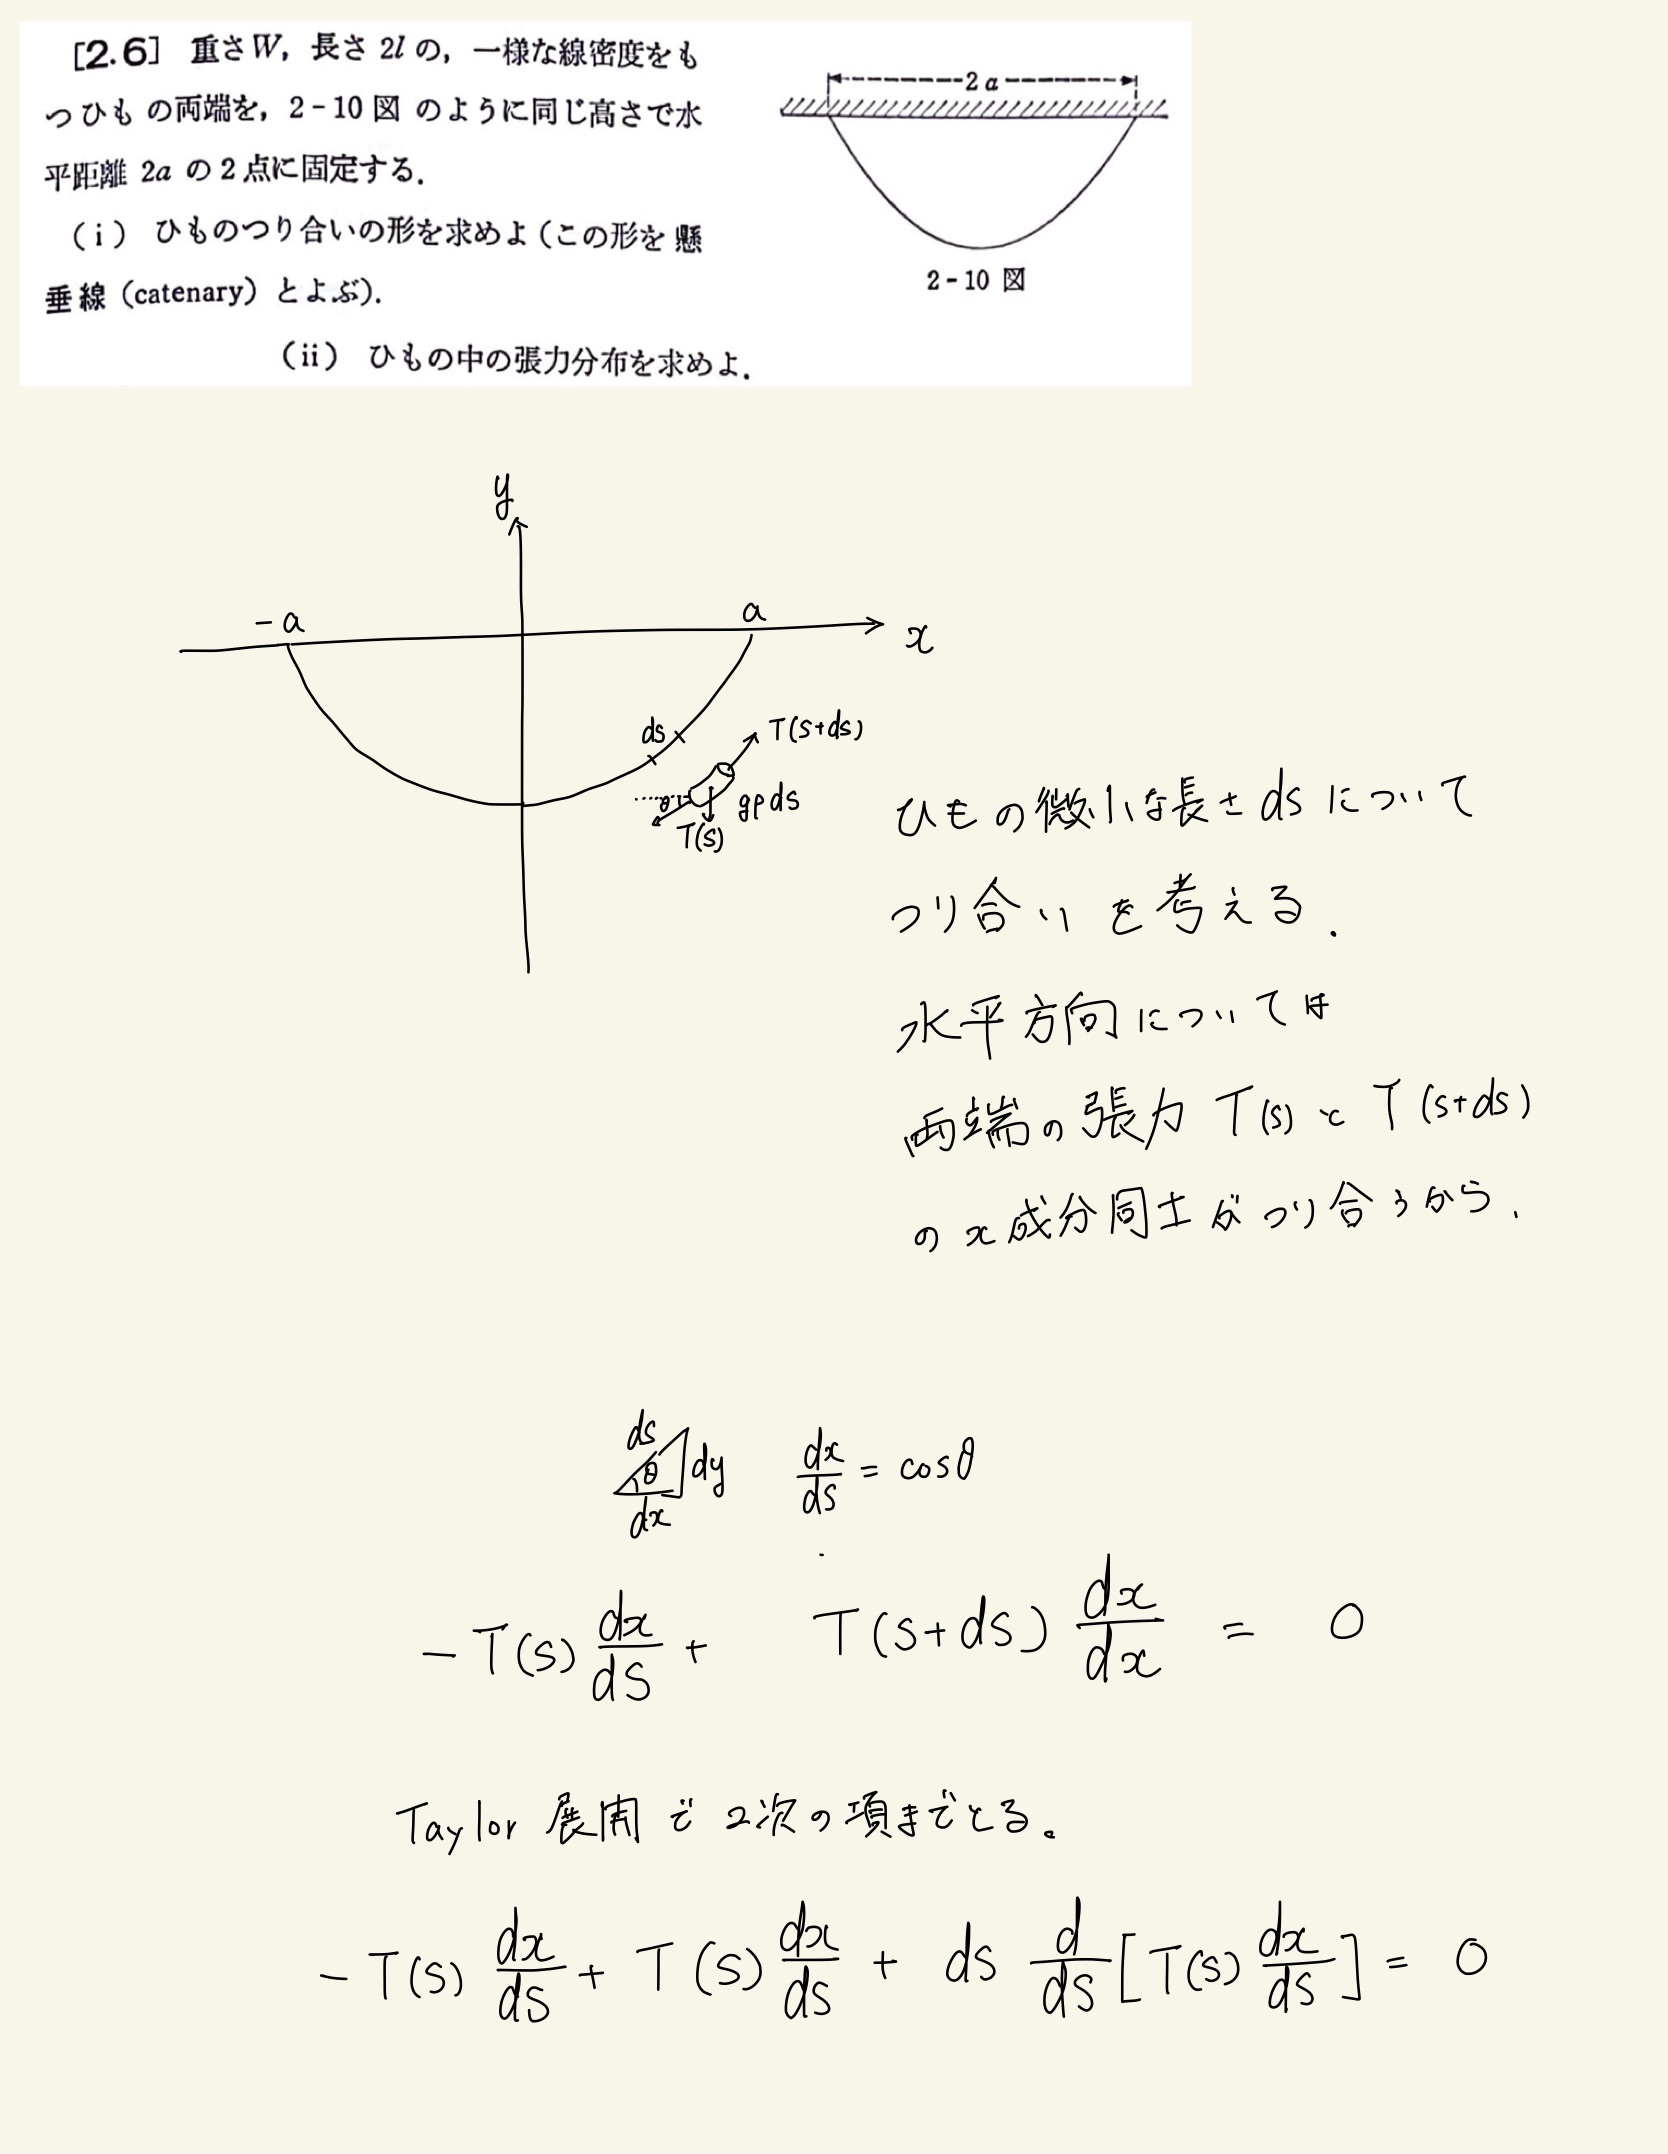 [2.6] 重さW, 長さ 2l の, 一様な線密度をも
つひも の両端を, 2-10 図 のように同じ高さで水
平距離 2a の2点に固定する.
(i) ひものつり合いの形を求めよ(この形を 懸
垂線(catenary)とよぶ).
(ii) ひもの中の張力分布を求めよ.
2a
2-10 図
y
-a
a
x
ds
T(s+ds)
θ
gρds
T(s)
ひもの微小な長さ ds について
つり合い を考える.
水平方向については
両端の張力 T(s) と T(s+ds)
の x成分同士がつり合うから,
ds
θ
dy
dx
dx/ds = cosθ
-T(s) dx/ds + T(s+ds) dx/dx = 0
Taylor 展開で 2次の項までとる。
-T(s) dx/ds + T(s) dx/ds + ds d/ds [T(s) dx/ds] = 0